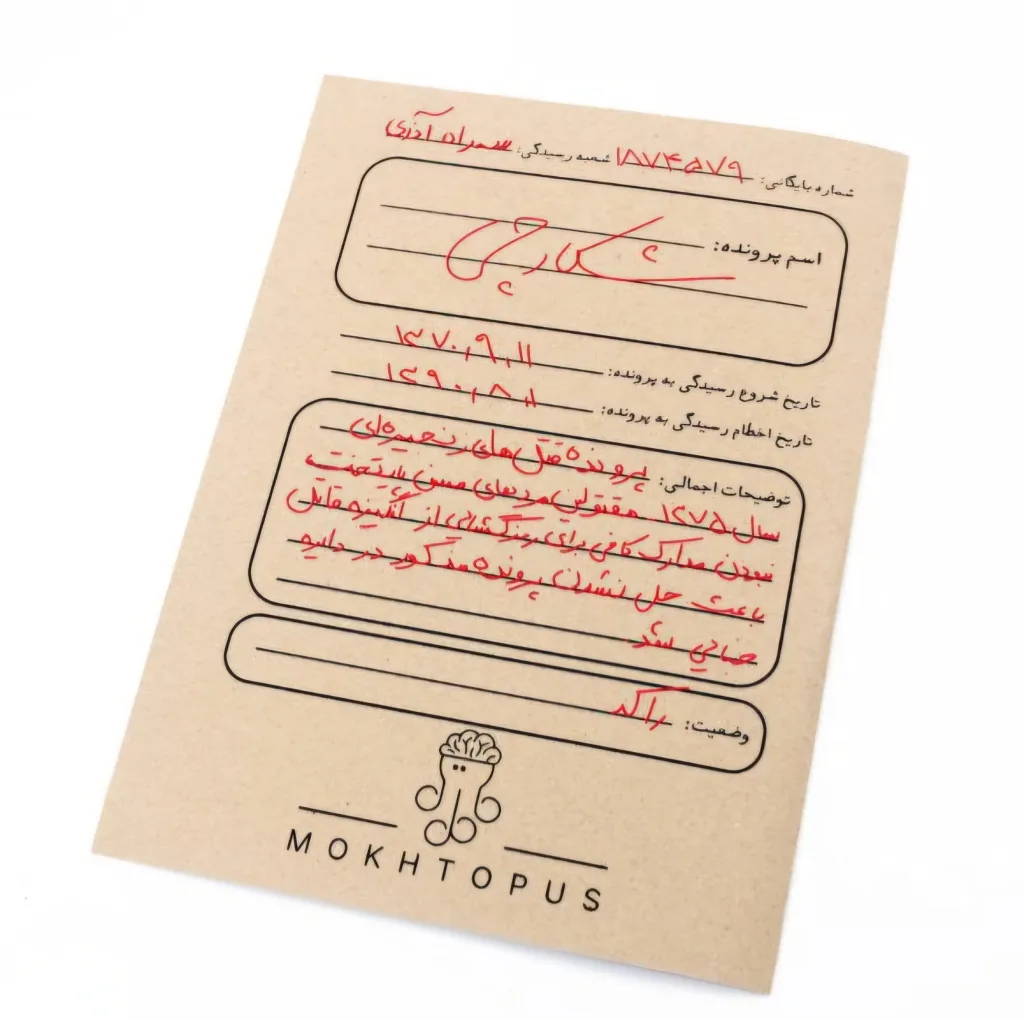 شماره بایگانی: ۱۸۷۴۵۷۹ شعبه رسیدگی: سمراد آذری
اسم پرونده:
شکارچی
تاریخ شروع رسیدگی به پرونده: ۱۳۷۰,۹,۱۱
تاریخ اخطام رسیدگی به پرونده: ۱۳۹۰,۸,۱
توضیحات اجمالی: پرونده قتل‌های زنجیره‌ای
سال ۱۳۷۵. مقتولین مردهای مسن پایتخت
نبودن مدارک کافی برای رمزگشائی از انگیزه قاتل
باعث حل نشدن پرونده مذکور در دایره
جنائی شد.
وضعیت: راکد
MOKHTOPUS